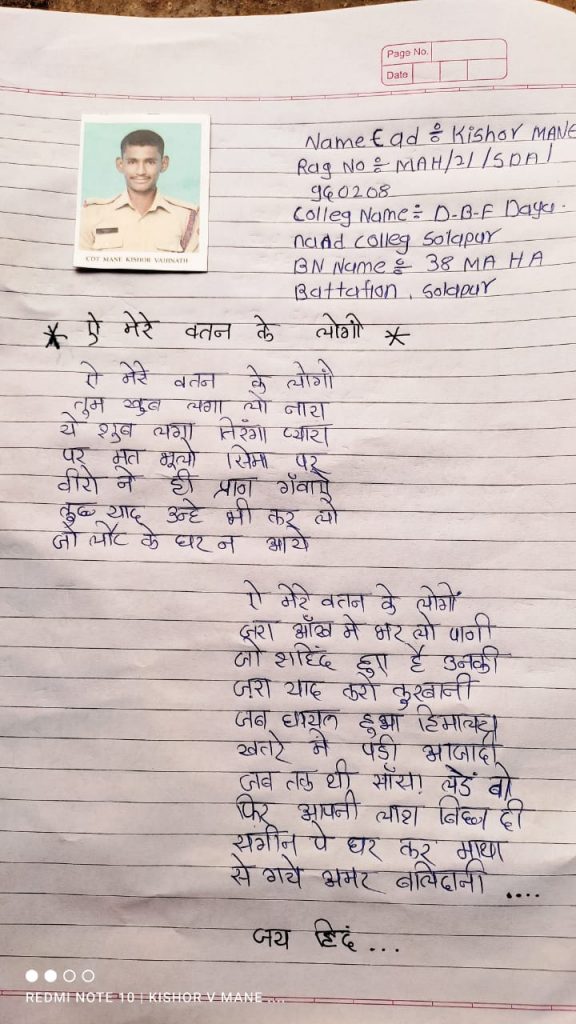 Page No.
Date
Name Cad :- Kishor MANE
Rag No :- MAH/21/SDA/
960208
Colleg Name :- D-B-F Daya-
nand Colleg Solapur
BN Name :- 38 MA HA
Battation, Solapur
CDT MANE KISHOR VAIJINATH
* ऐ मेरे वतन के लोगो *
ऐ मेरे वतन के लोगो
तुम खुब लगा लो नारा
ये शुब लगा तिरंगा प्यारा
पर मत भूलो सिमा पर
वीरो ने ही प्रान गँवाऐ
कुछ याद उन्हे भी कर लो
जो लौट के घर न आये
ऐ मेरे वतन के लोगों
ज़रा आँख मे भर लो पानी
जो शहिद हुए है उनकी
जरा याद करो कुरबानी
जब घायल हुआ हिमालय
खतरे में पड़ी आजादी
जब तक थी साँस लडें वो
फिर आपनी लाश बिछा दी
संगीन पे धर कर माथा
सो गये अमर बलिदानी ....
जय हिदं ...
REDMI NOTE 10 | KISHOR V MANE ....